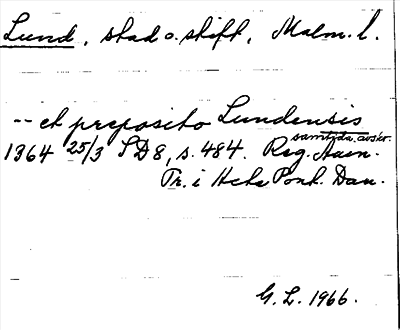 Lund, stad o. stift, Malm. l.
-- et preposito Lundensis
samtida avskr.
1364 25/3 SD8, s. 484. Reg. Aven.
Tr. i Acta Pont. Dan.
G. L. 1966.